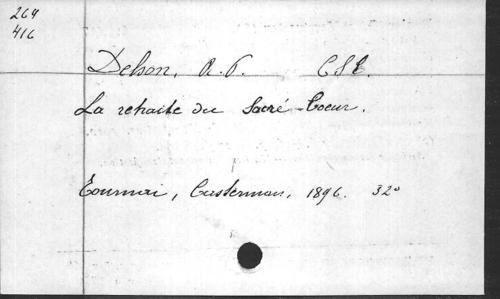 264
416
Delson, R. P. C S R.
La retraite du Sacré-Coeur.
Tournai, Casterman, 1896. 32°